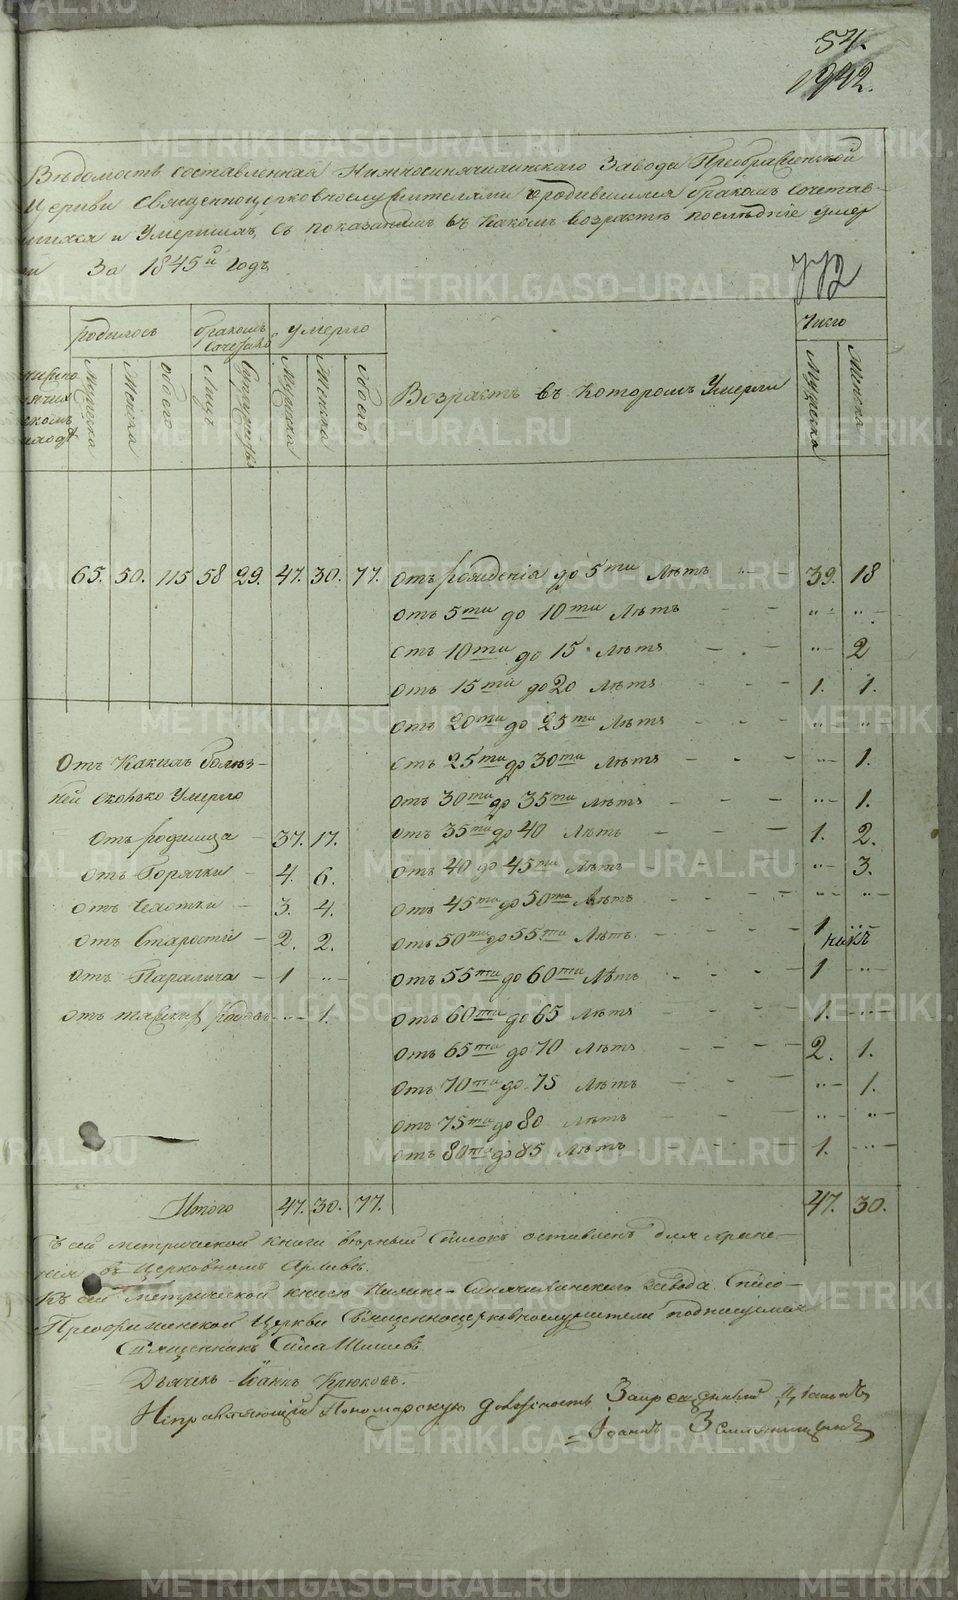 54.
1942.
Вѣдомость составленная Нижносинячихинскаго Завода Преображенской
Церкви Священноцерковнослужителями о родившихся бракомъ сочетав-
шихся и Умершихъ, съ показаніемъ въ какомъ возрастѣ послѣдніе умер
ли За 1845й годъ
772
родилось бракомъ сочетавш умерло Число
Мужеска Женска обоего Лицъ Супружествъ Мужеска Женска обоего Возрастъ въ Которомъ Умерли Мужеска Женска
65. 50. 115 58 29. 47. 30. 77. Отъ рожденія до 5ти Лѣтъ - - 39. 18
отъ 5ти до 10ти Лѣтъ - - „- „-
отъ 10ти до 15 Лѣтъ - - „- 2
отъ 15ти до 20 Лѣтъ - - 1. 1.
отъ 20ти до 25ти Лѣтъ - - „ „
отъ 25ти до 30ти Лѣтъ - - „- 1.
отъ 30ти до 35ти Лѣтъ - - „- 1.
отъ 35ти до 40 Лѣтъ - - 1. 2.
отъ 40 до 45ти Лѣтъ - - „- 3.
отъ 45ти до 50ти Лѣтъ - - „- „-
отъ 50ти до 55ти Лѣтъ - - 1
отъ 55ти до 60ти Лѣтъ - - 1 „-
отъ 60ти до 65 Лѣтъ - - 1. „-
отъ 65ти до 70 Лѣтъ - - 2. 1.
отъ 70ти до 75 Лѣтъ - - „- 1.
отъ 75ти до 80 Лѣтъ - - „- „-
отъ 80ти до 85 Лѣтъ - - 1. „-
Отъ Какихъ болѣз-
ней сколько Умерло
Отъ родимца - 37. 17.
отъ Горячки - 4. 6.
отъ Чахотки - 3. 4.
отъ Старости - 2. 2.
отъ Паралича - 1 „-
отъ родовъ - „- 1.
Итого 47. 30. 77. 47. 30.
Съ сей метрической книги вѣрный Списокъ оставленъ для хране-
нія въ Церковномъ Архивѣ.
Къ сей метрической книгѣ Нижне-Синячихинскаго завода Спасо-
Преображенской Церкви Священноцерковнослужители подписуемся
Священникъ Сила Шишевъ
Дьячекъ Іоаннъ Крюковъ.
Исправляющій Пономарскую должность
Іоаннъ
METRIKI.GASO-URAL.RU